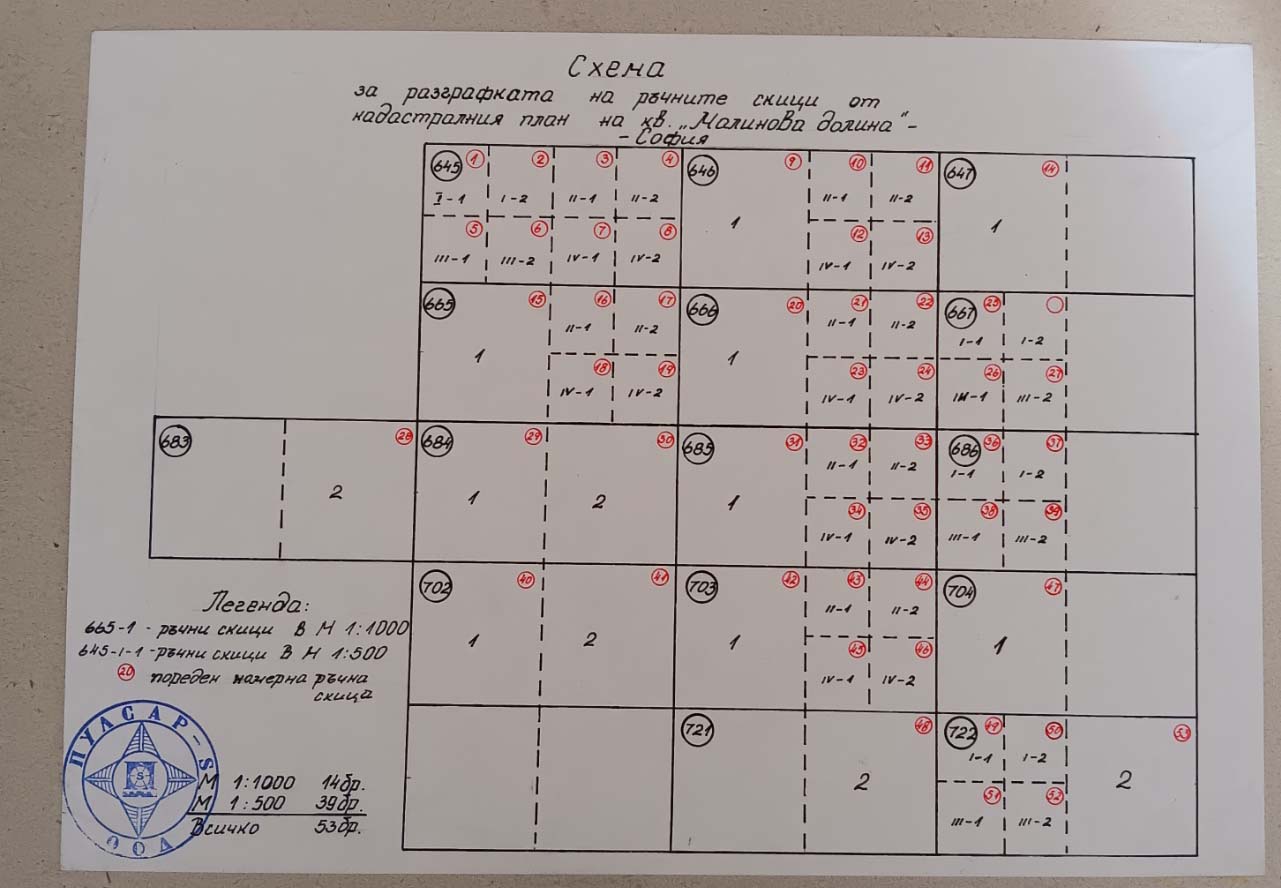 Схема
за разграфката на ръчните скици от
кадастралния план на кв. „Малинова долина" -
- София
645 1 2 3 4 646 9 10 11 647 14
I-1 I-2 II-1 II-2 1 II-1 II-2 1
5 6 7 8 12 13
III-1 III-2 IV-1 IV-2 IV-1 IV-2
665 15 16 17 666 20 21 22 667 25
1 II-1 II-2 1 II-1 II-2 I-1 I-2
18 19 23 24 26 27
IV-1 IV-2 IV-1 IV-2 III-1 III-2
683 28 684 29 30 685 31 32 33 686 36 37
2 1 2 1 II-1 II-2 I-1 I-2
34 35 38 39
IV-1 IV-2 III-1 III-2
702 40 41 703 42 43 44 704 47
1 2 1 II-1 II-2 1
45 46
IV-1 IV-2
721 48 722 49 50 53
2 I-1 I-2 2
51 52
III-1 III-2
Легенда:
665-1 - ръчни скици в М 1:1000
645-I-1 - ръчни скици в М 1:500
20 пореден номер на ръчна
скица
ПУЛСАР-S
ООД
S
М 1:1000 14бр.
М 1:500 39бр.
Всичко 53бр.